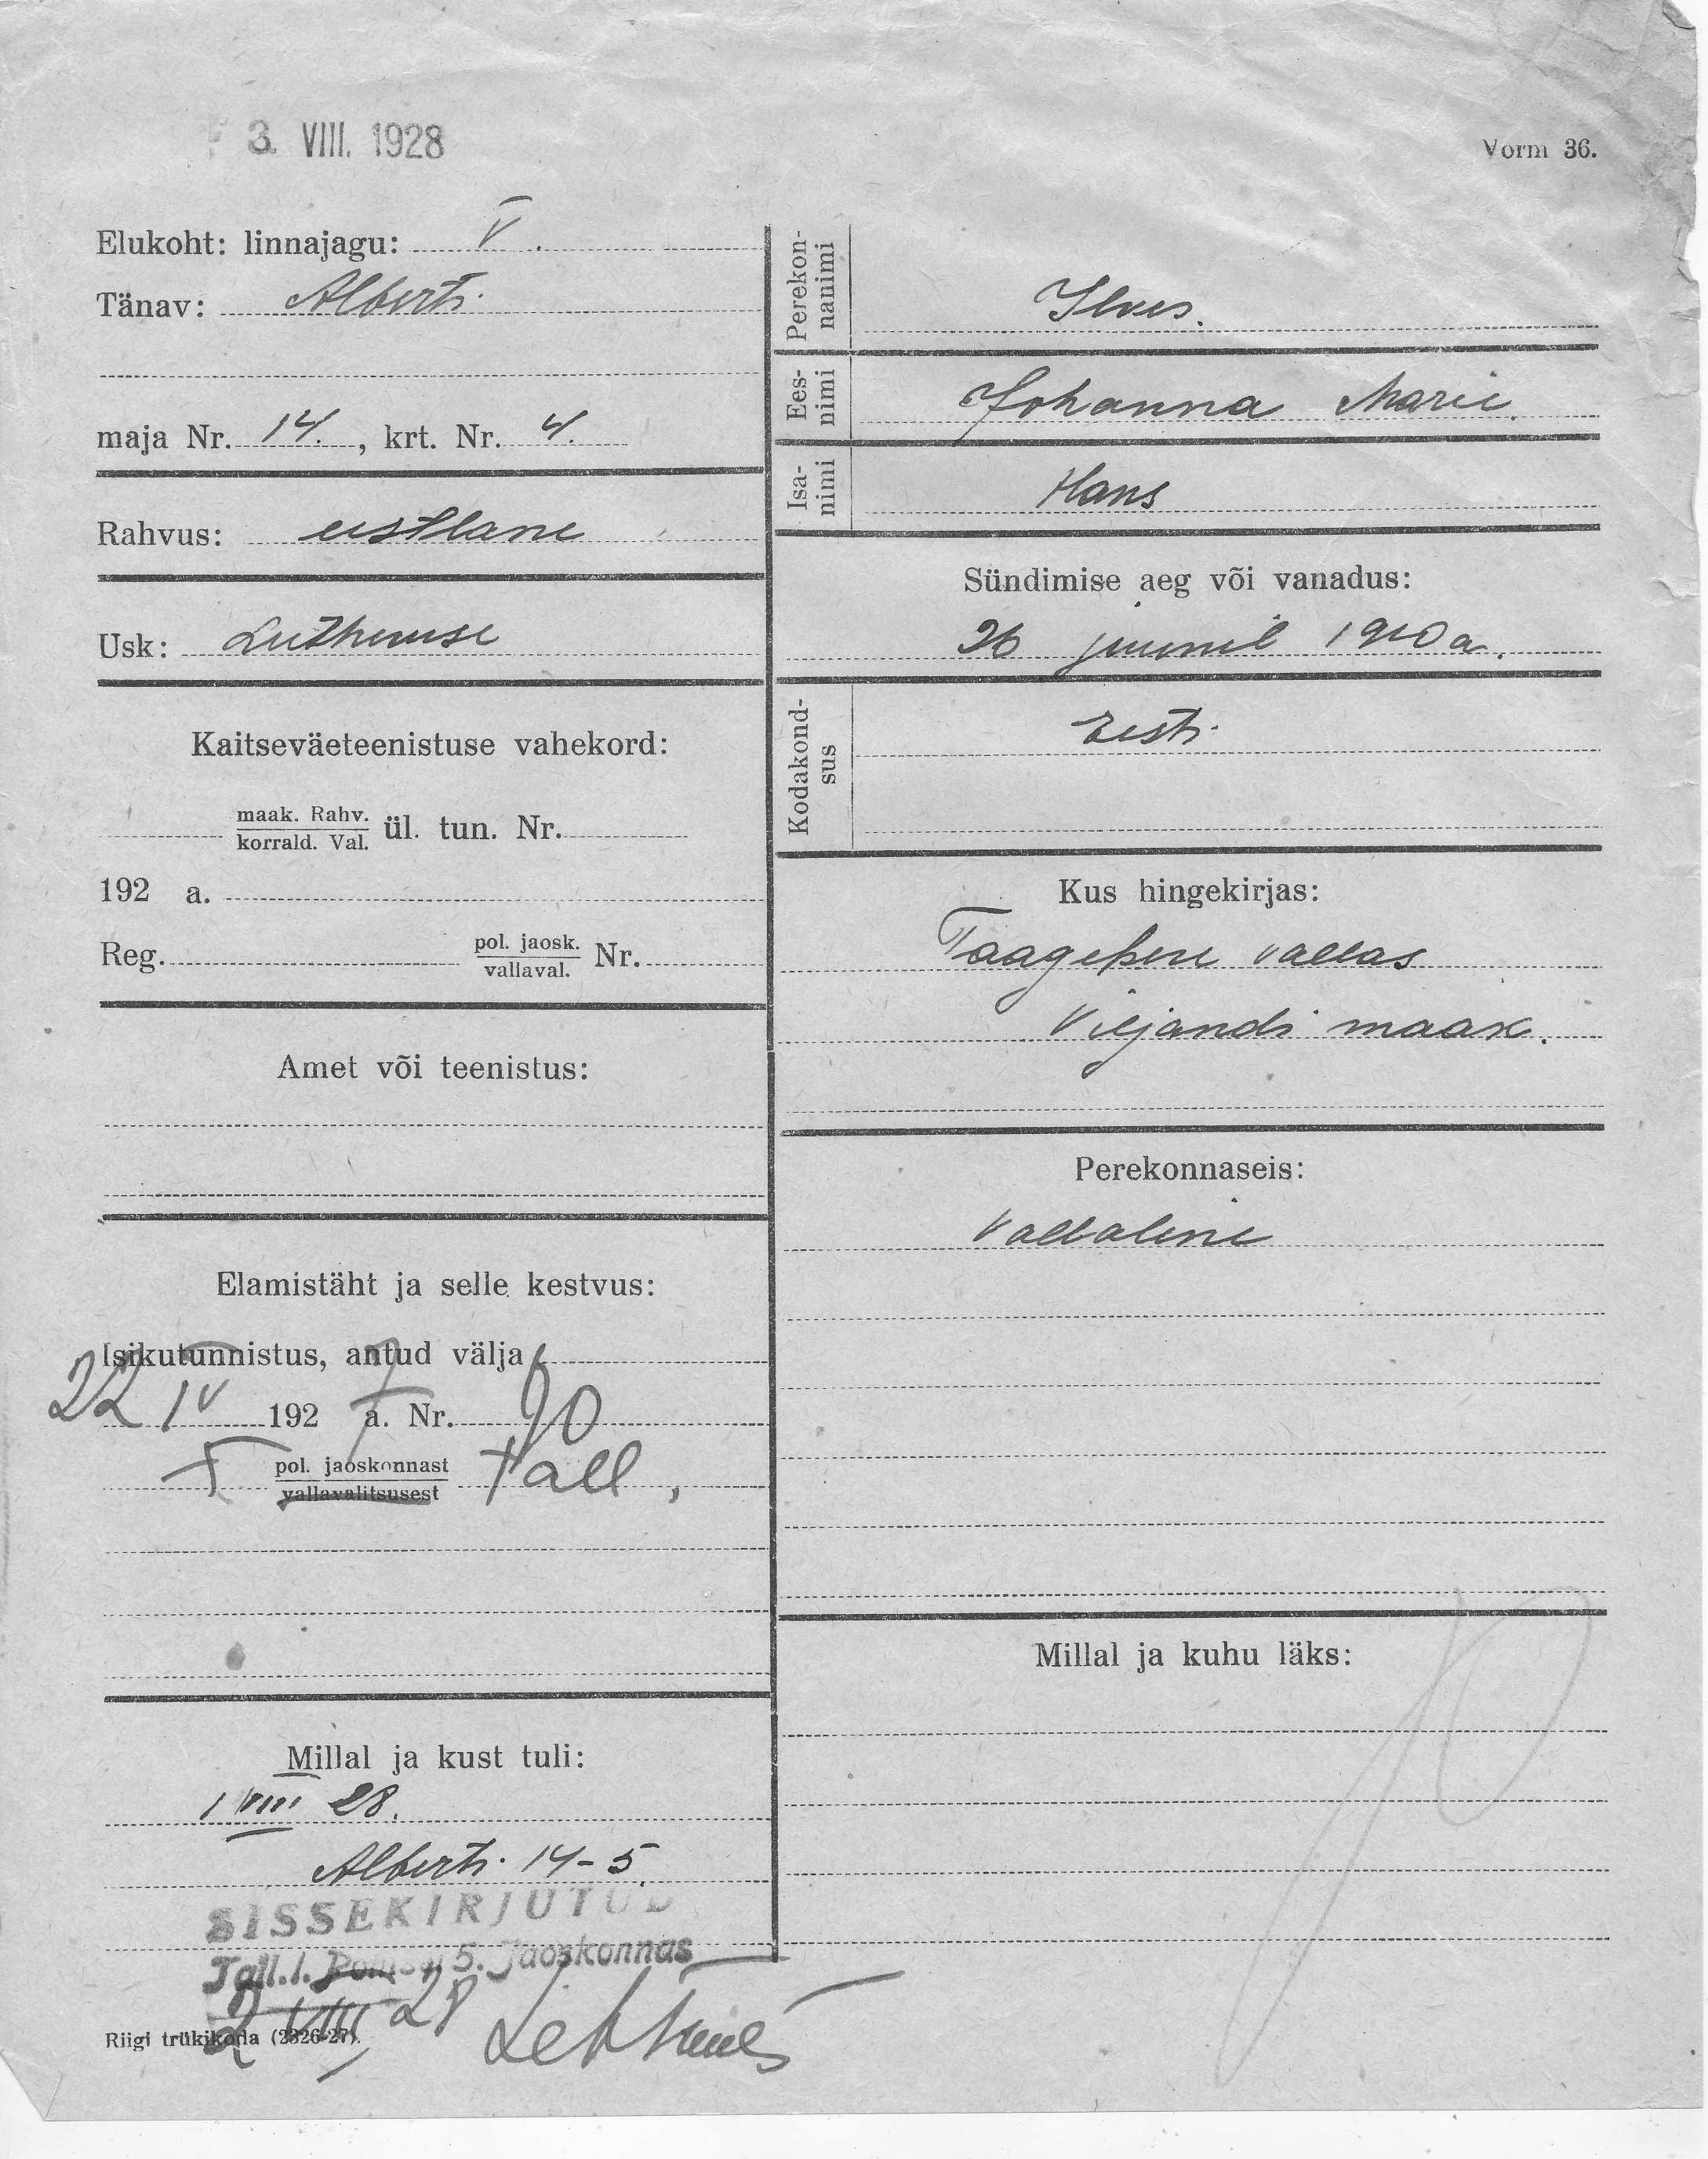 3. VIII. 1928
Vorm 36.
Elukoht: linnajagu: V.
Tänav: Alberti
maja Nr. 14., krt. Nr. 4.
Rahvus: eestlane
Usk: Lutheruse
Kaitseväeteenistuse vahekord:
maak. Rahv.
korrald. Val. ül. tun. Nr.
192 a.
Reg. pol. jaosk.
vallaval. Nr.
Amet või teenistus:
Elamistäht ja selle kestvus:
Isikutunnistus, antud välja
22 IV 1927 a. Nr. 90
pol. jaoskonnast Tall,
vallavalitsusest
Millal ja kust tuli:
1 VIII 28.
Alberti 14-5.
SISSEKIRJUTUD
Tall.l. Politsei 5. Jaoskonnas
2 VIII 28
Riigi trükikoda (2326-27).
Perekonnanimi
Ilves.
Eesnimi
Johanna Marie.
Isanimi
Hans
Sündimise aeg või vanadus:
26 juunil 1910 a.
Kodakondsus
Eesti
Kus hingekirjas:
Taagepere vallas
Viljandi maak.
Perekonnaseis:
Vallaline
Millal ja kuhu läks: